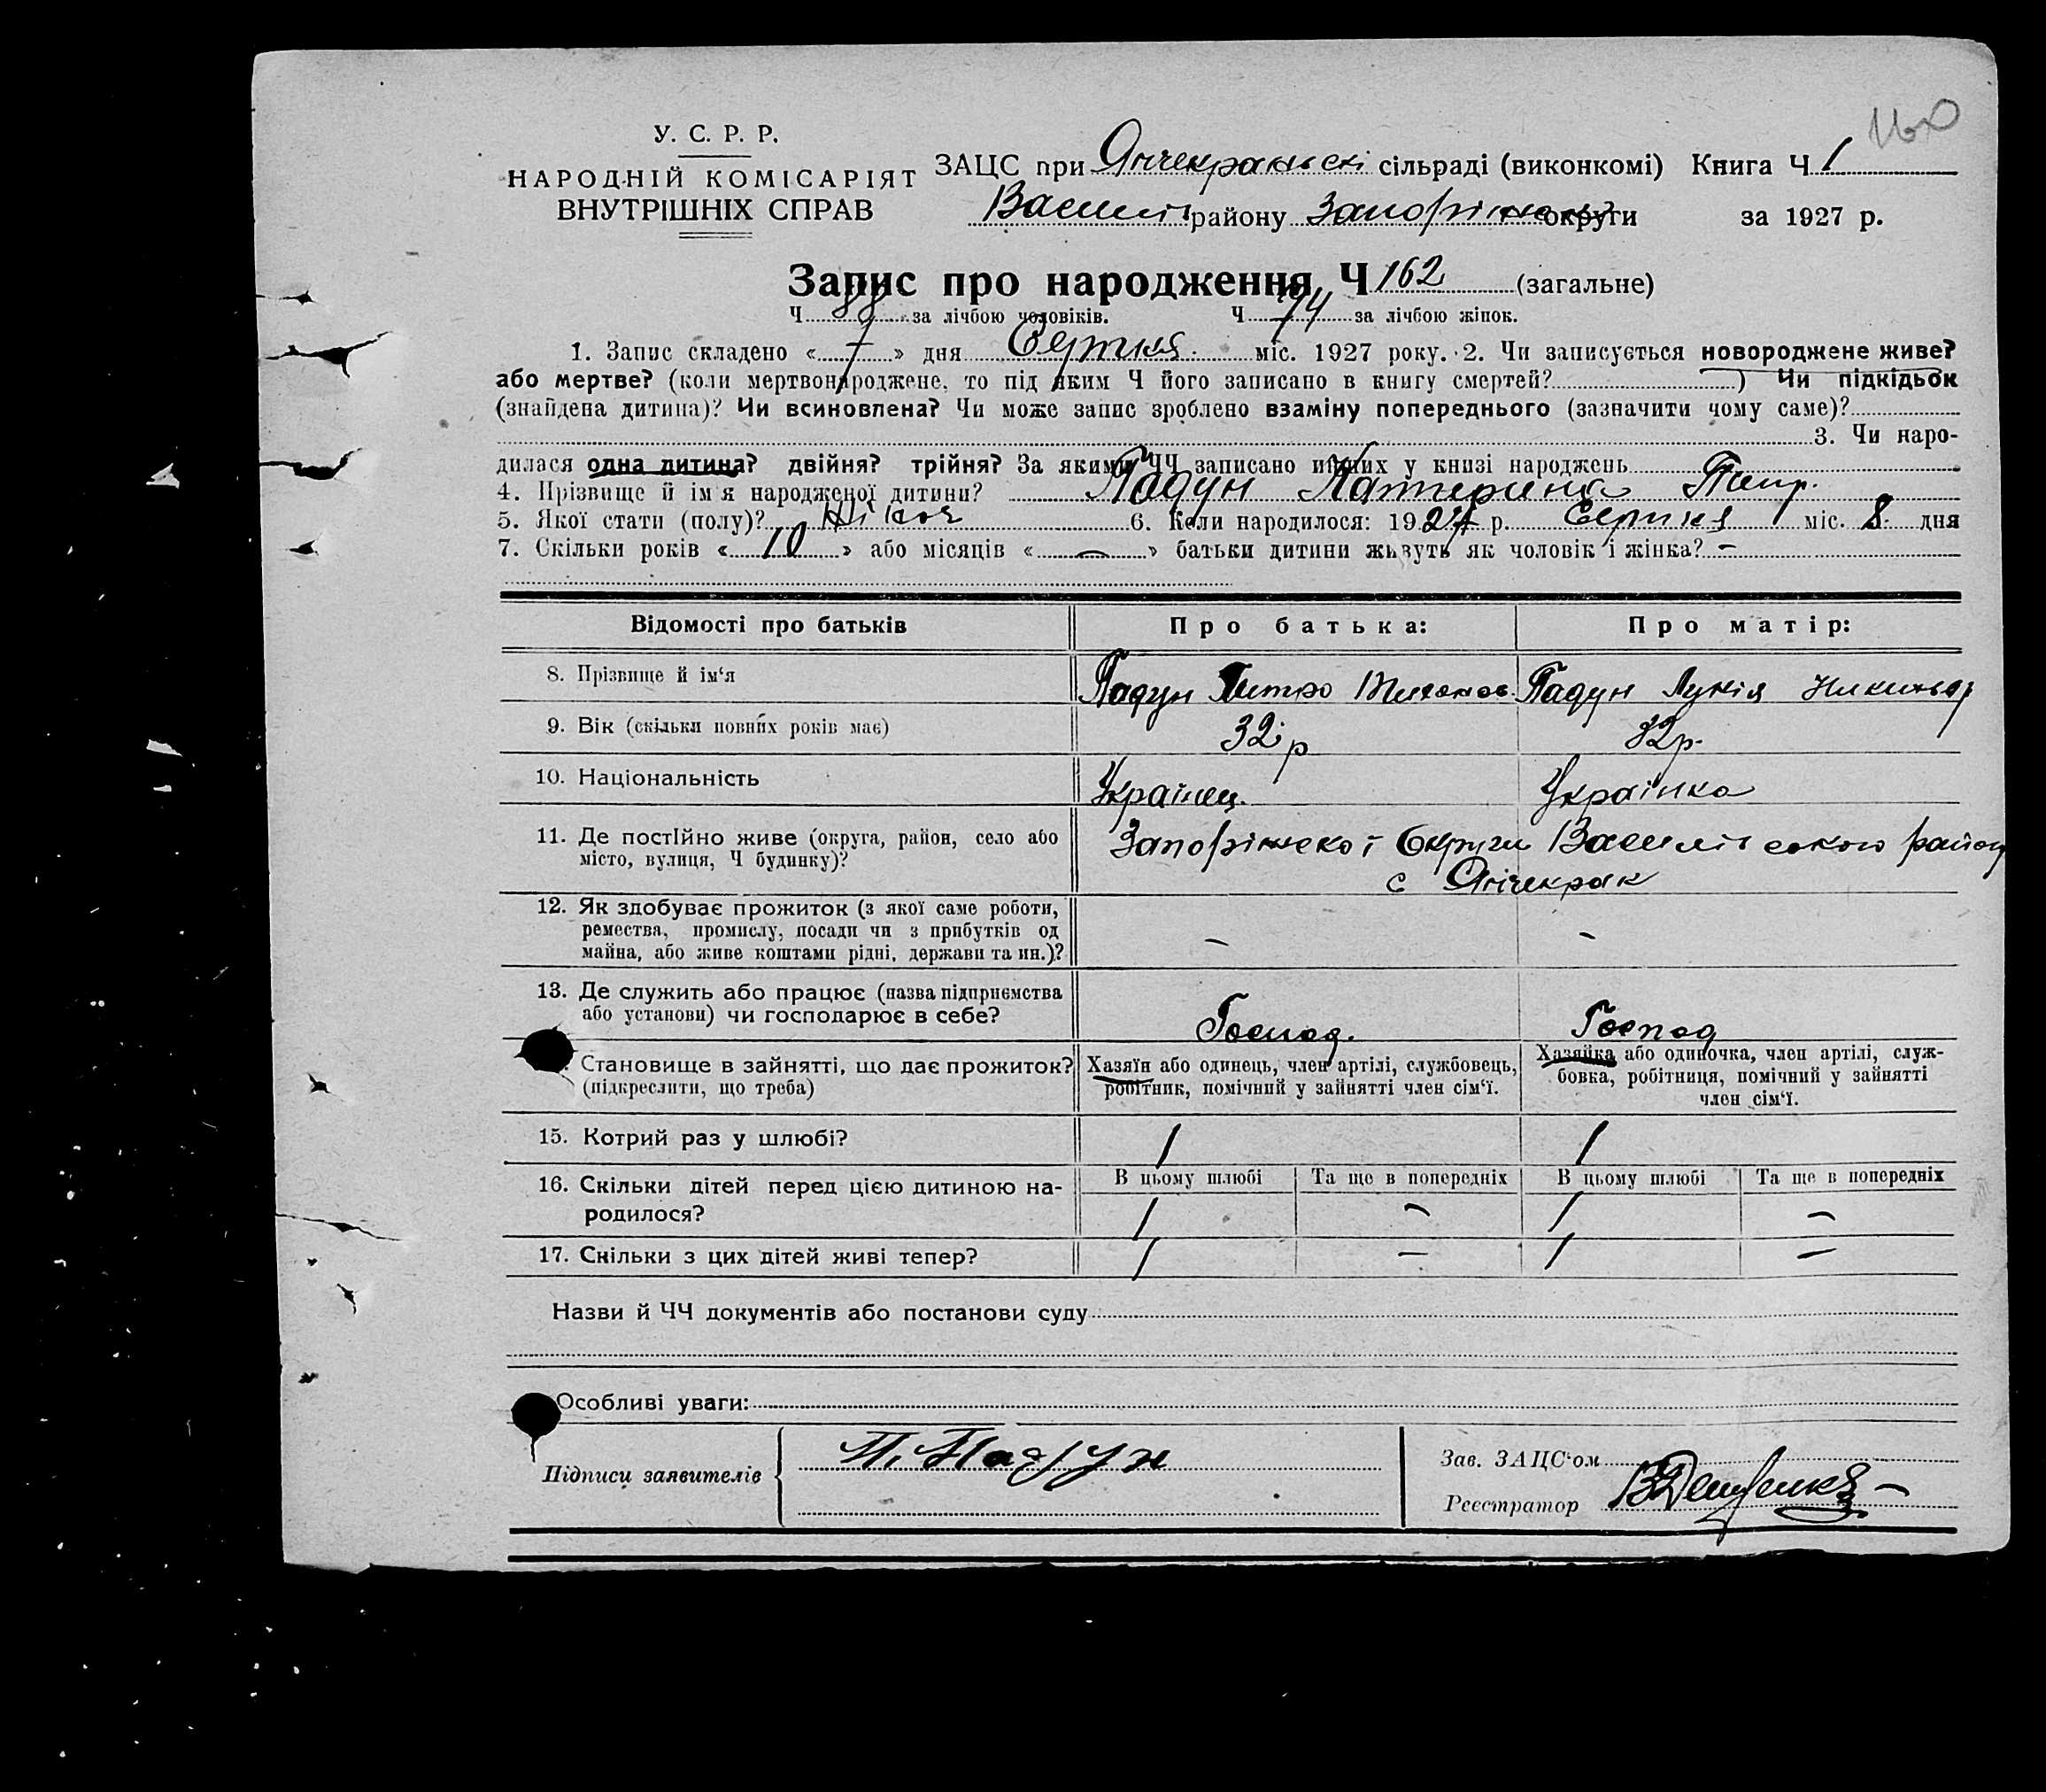 160
У. С. Р. Р.
НАРОДНІЙ КОМІСАРІЯТ
ВНУТРІШНІХ СПРАВ
ЗАЦС при Янчекраньскі сільраді (виконкомі) Книга Ч 1
Василів району Запоріжської округи за 1927 р.
Запис про народження Ч 162 (загальне)
Ч 88 за лічбою чоловіків. Ч 74 за лічбою жінок.
1. Запис складено « 7 » дня Серпня міс. 1927 року. 2. Чи записується новороджене живе?
або мертве? (коли мертвонароджене, то під яким Ч його записано в книгу смертей? ) Чи підкідьок
(знайдена дитина)? Чи всиновлена? Чи може запис зроблено взаміну попереднього (зазначити чому саме)?
3. Чи наро-
дилася одна дитина? двійня? трійня? За якими ЧЧ записано инших у книзі народжень
4. Прізвище й ім'я народженої дитини? Падун Катерина Петр.
5. Якої стати (полу)? Жіноч 6. Коли народилося: 1927 р. Серпня міс. 8 дня
7. Скільки років « 10 » або місяців « — » батьки дитини живуть як чоловік і жінка? –
Відомості про батьків Про батька: Про матір:
8. Прізвище й ім'я Падун Петро Падун Лукія
9. Вік (скільки повних років має) 32 р 32 р.
10. Національність Українец. Українка
11. Де постІйно живе (округа, район, село або
місто, вулиця, Ч будинку)? Запоріжської Округи Василівського району
с Янчекрак
12. Як здобуває прожиток (з якої саме роботи,
ремества, промислу, посади чи з прибутків од
майна, або живе коштами рідні, держави та ин.)? – –
13. Де служить або працює (назва підприємства
або установи) чи господарює в себе? Господ. Господ
Становище в зайнятті, що дає прожиток?
(підкреслити, що треба)
Хазяїн або одинець, член артілі, службовець,
робітник, помічний у зайнятті член сім'ї.
Хазяйка або одиночка, член артілі, служ-
бовка, робітниця, помічний у зайнятті
член сім'ї.
15. Котрий раз у шлюбі? 1 1
В цьому шлюбі Та ще в попередніх В цьому шлюбі Та ще в попередніх
16. Скільки дітей перед цією дитиною на-
родилося? 1 – 1 –
17. Скільки з цих дітей живі тепер? 1 – 1 –
Назви й ЧЧ документів або постанови суду
Особливі уваги:
Підписи заявителів П. Падун
Зав. ЗАЦС'ом
Реєстратор